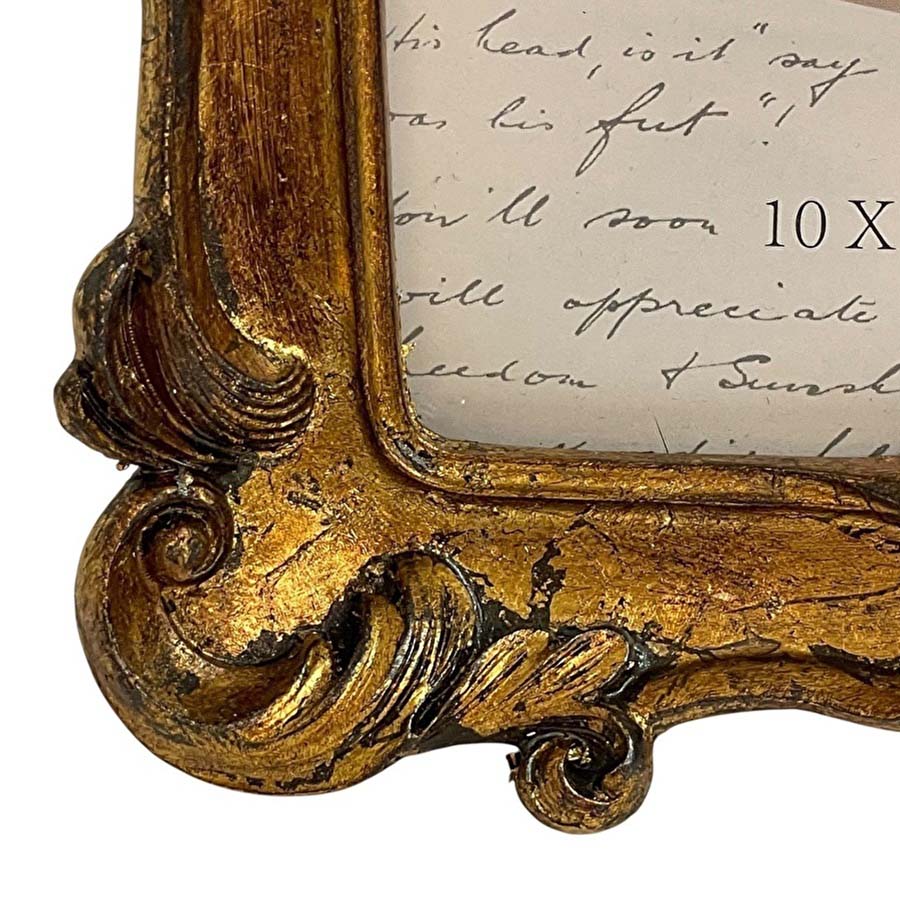 His head, is it " say
was his feet "!
You'll soon 10 X
will appreciate
freedom & Sunsh